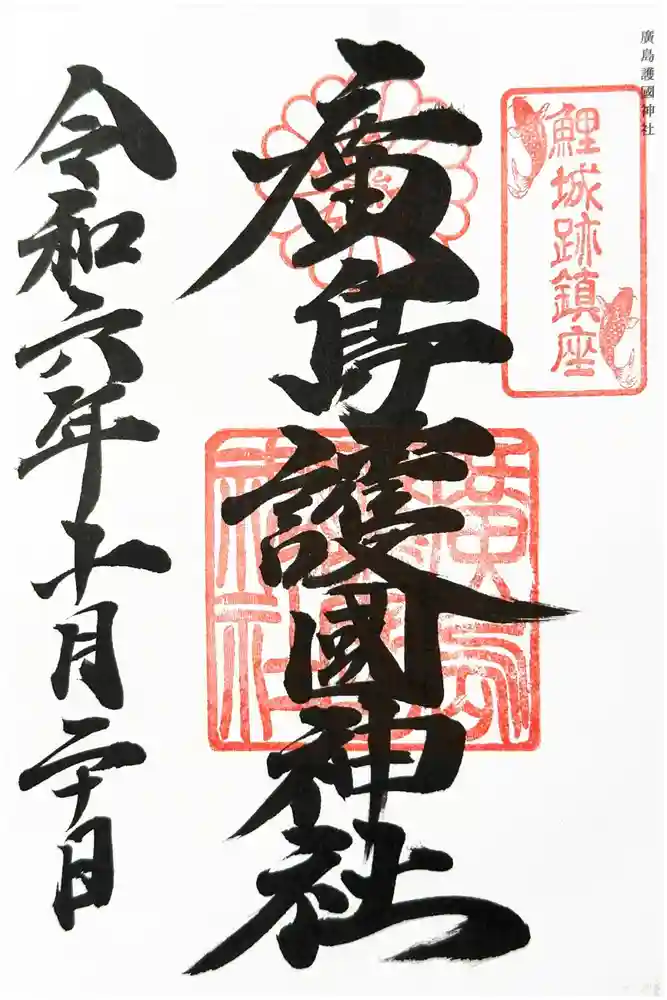 廣島護國神社
鯉城跡鎮座
廣島護國神社
令和六年十月二十日